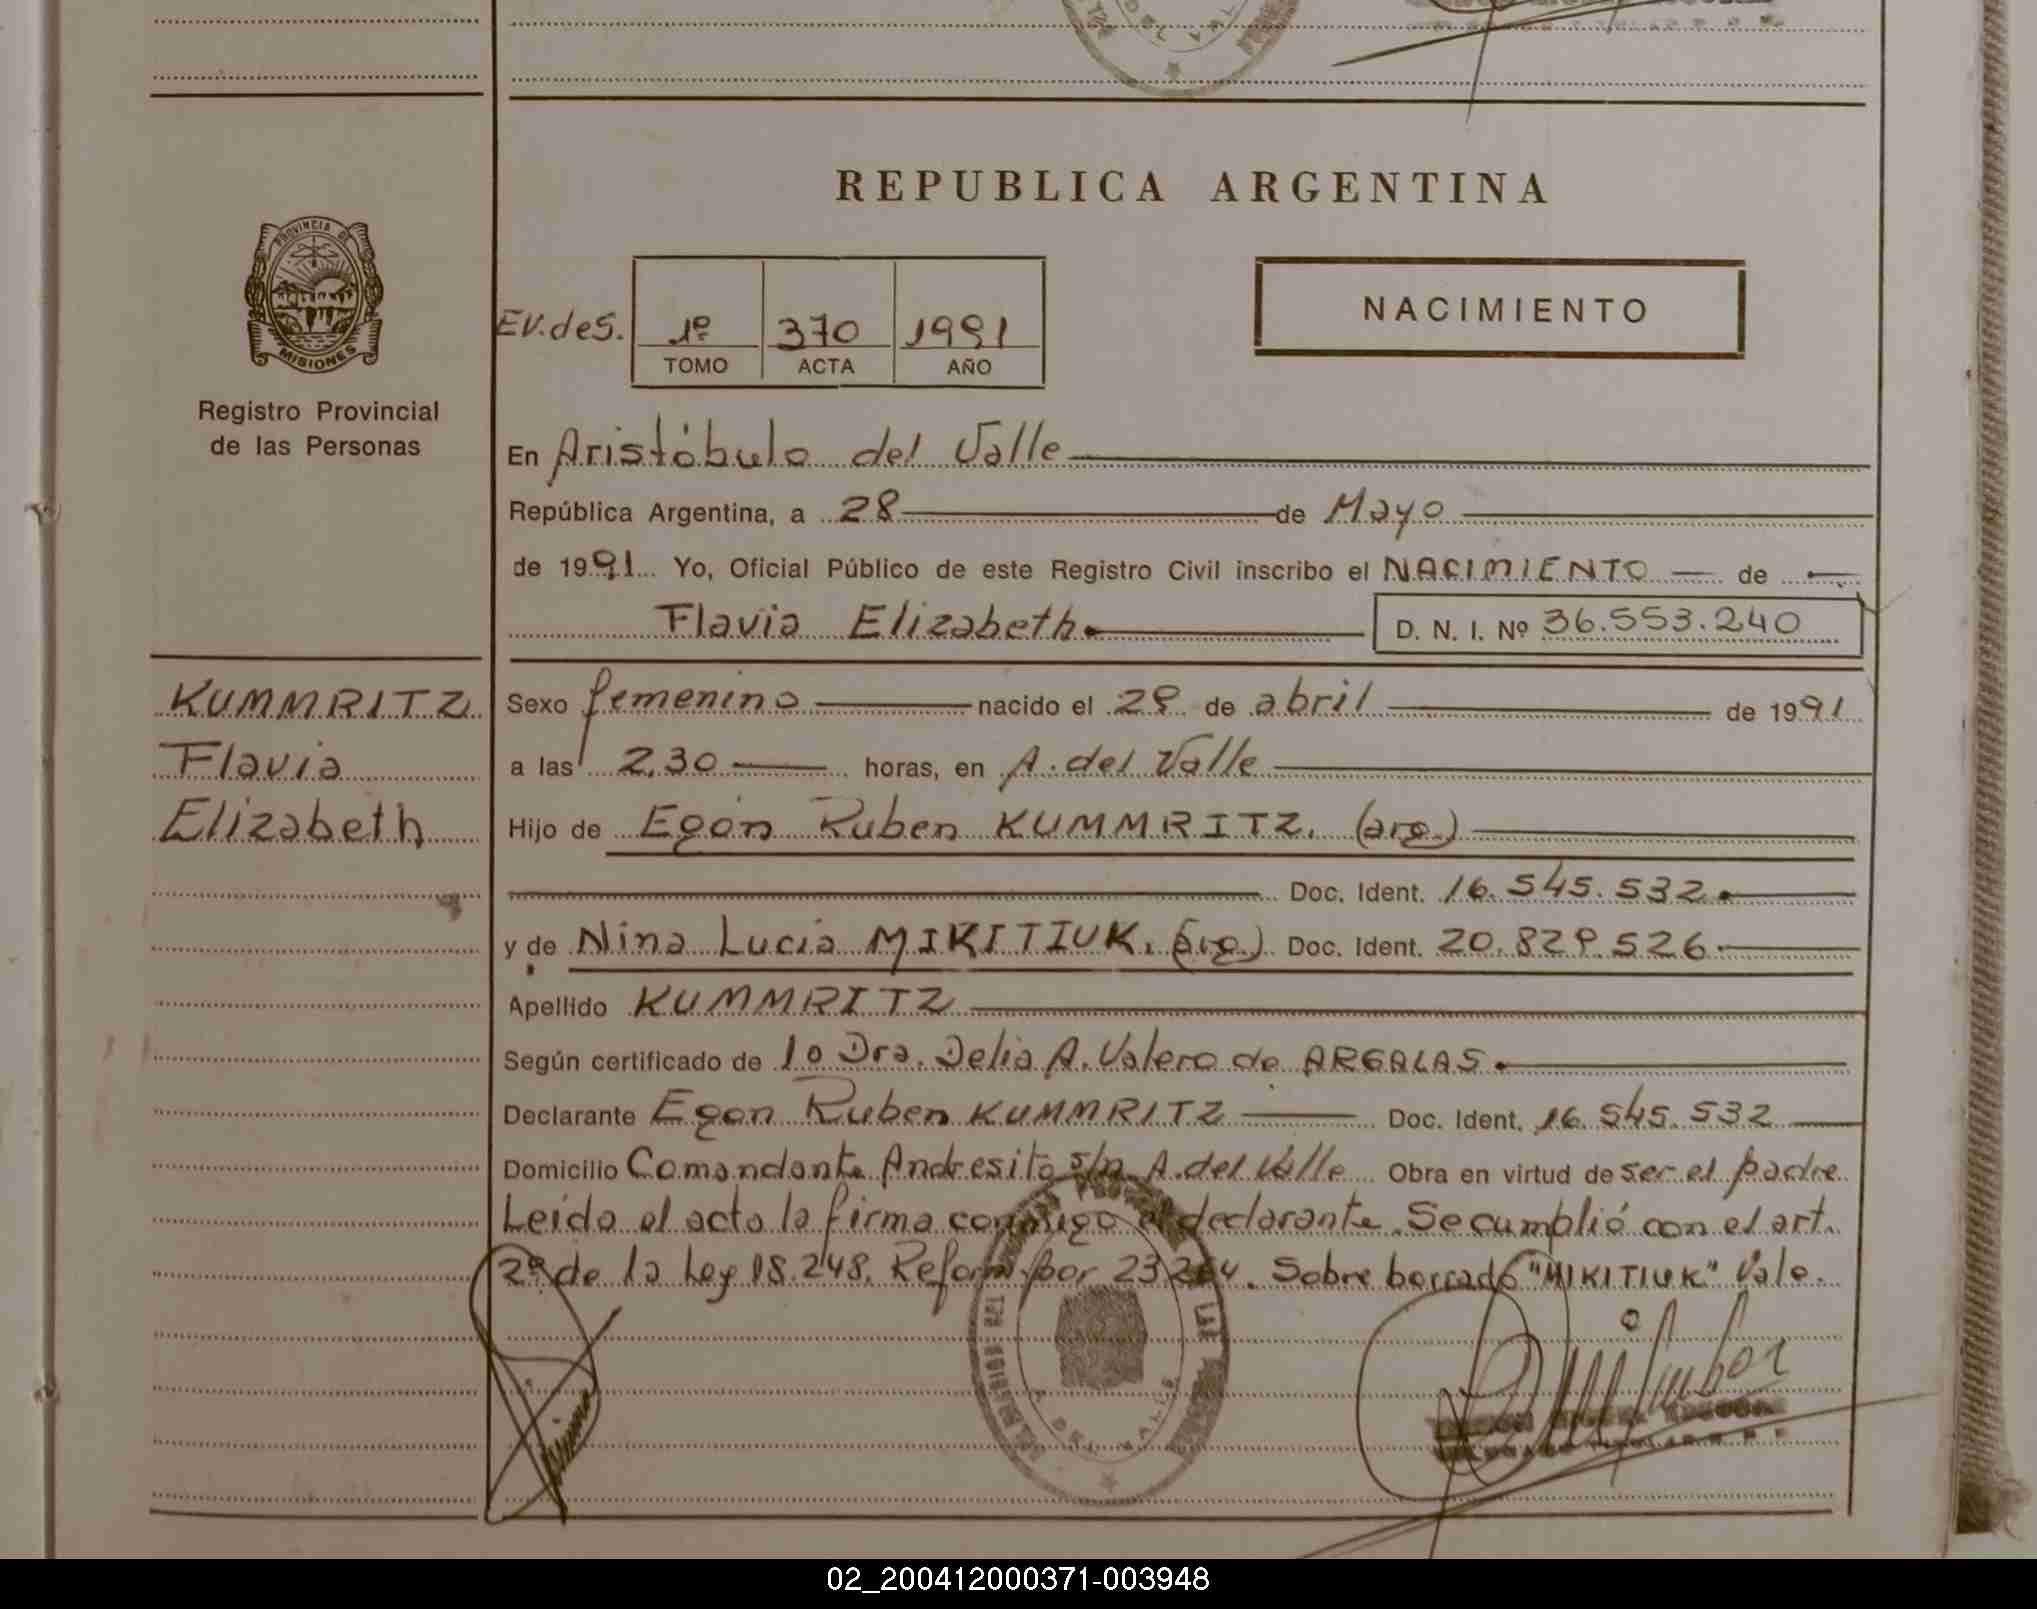 REPUBLICA ARGENTINA
PROVINCIA DE
MISIONES
Registro Provincial
de las Personas
EV.deS. 1º 370 1991
TOMO ACTA AÑO
NACIMIENTO
En Aristóbulo del Valle
República Argentina, a 28 de Mayo
de 1991 Yo, Oficial Público de este Registro Civil inscribo el NACIMIENTO de
Flavia Elizabeth D. N. I. Nº 36.553.240
KUMMRITZ
Flavia
Elizabeth
Sexo femenino nacido el 29 de abril de 1991
a las 2,30 horas, en A. del Valle
Hijo de Egon Ruben KUMMRITZ. (arg.)
Doc. Ident. 16.545.532
y de Nina Lucia MIKITIUK. (arg.) Doc. Ident. 20.829.526
Apellido KUMMRITZ
Según certificado de la Dra. Delia A. Valero de ARGALAS
Declarante Egon Ruben KUMMRITZ Doc. Ident. 16.545.532
Domicilio Comandante Andresito s/n A. del Valle Obra en virtud de ser el padre
Leida el acta la firma conmigo el declarante. Se cumplió con el art.
2º de la Ley 18.248. Reform. por 23.264. Sobre borrado "MIKITIUK" Vale.
02_200412000371-003948